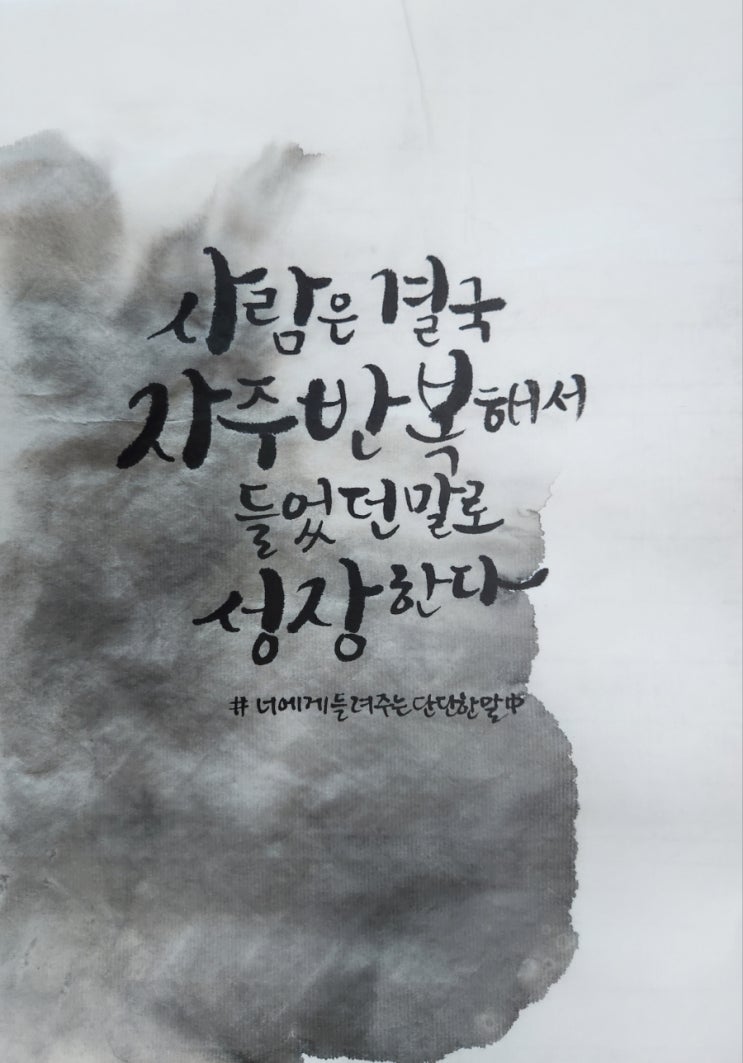 사람은 결국
자주 반복해서
들었던 말로
성장한다
# 너에게 들려주는 단단한 말 中